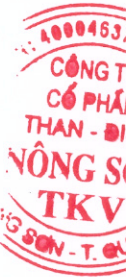 4000463
CÔNG T
CỔ PHẦ
THAN - ĐI
NÔNG S
TKV
G SƠN - T. QU